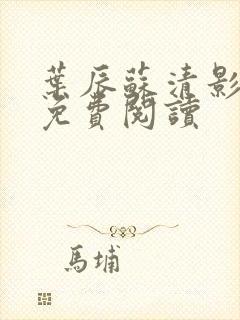 葉辰蘇清影
免費閱讀
馬埔